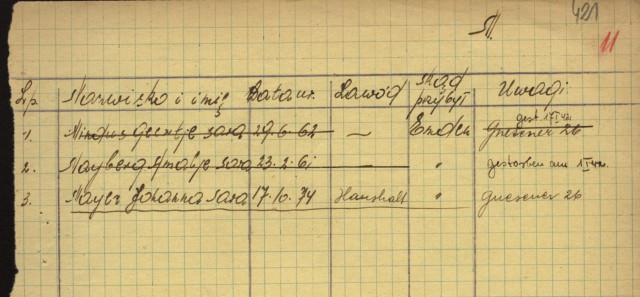 M.
421
11
Lp. Nazwisko i imię Data ur. Zawód Skąd przybył Uwagi
1. Mindus Geertje Sara 29.6.62 — Emden gest. 17/I 42. Gnesener 26
2. Nayberg Amalje Sara 23.2.61 — " gestorben am 1/II 42.
3. Mayer Johanna Sara 17.10.74 Haushalt " Gnesener 26